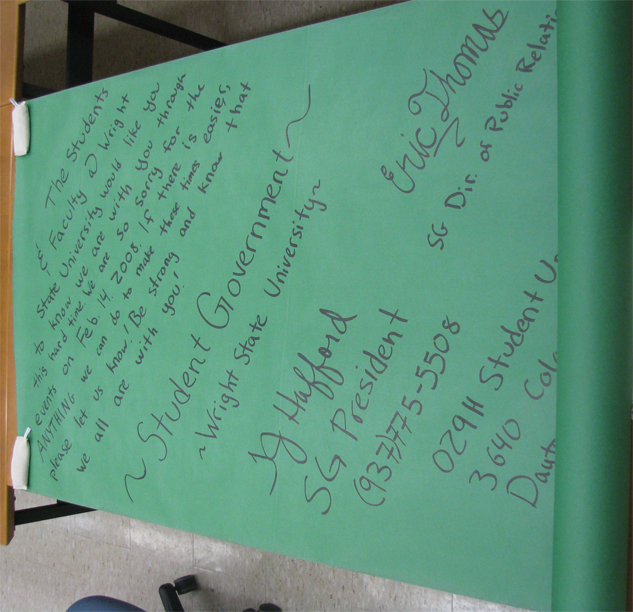 The Students
& Faculty @ Wright
State University would like you
to know we are with you through
this hard time. We are so sorry for the
events on Feb. 14, 2008. If there is
ANYTHING we can do to make these times easier,
please let us know! Be strong and know that
we all are with you!
~Student Government~
~Wright State University~
Jy Hafford
SG President
(937)775-5508
029H Student U
3640 Col
Dayto
Eric Thomas
SG Dir. of Public Relati